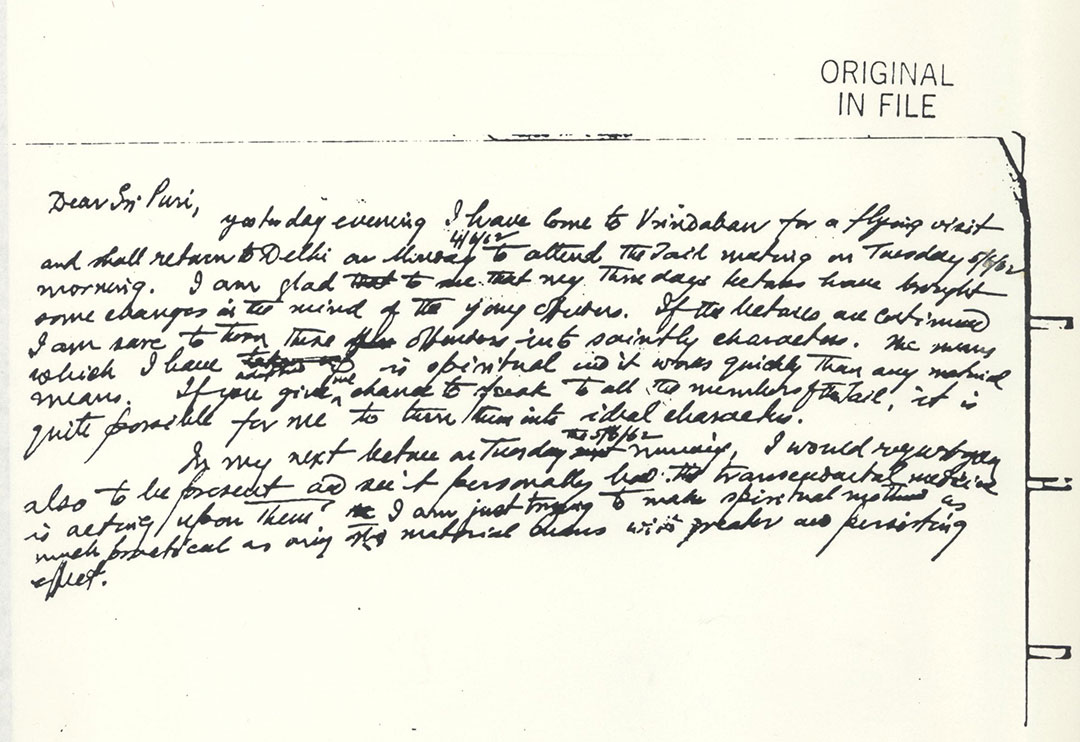 ORIGINAL
IN FILE
Dear Sri Puri,
yesterday evening I have come to Vrindaban for a flying visit
4/6/62
and shall return to Delhi on Monday to attend the Jail meeting on Tuesday 5/6/62
morning. I am glad to see that my three days lectures have brought
some changes in the mind of the young offenders. If the lectures are continued
I am sure to turn these offenders into saintly characters. The means
which I have is spiritual and it works quickly than any material
means. If you give me chance to speak to all the members of the Jail, it is
quite possible for me to turn them into ideal characters.
the 5/6/62
In my next lecture on Tuesday morning, I would request you
also to be present and see it personally how the transcendental medicine
is acting upon them? I am just trying to make spiritual method as
much practical as any material means with greater and persisting
effect.